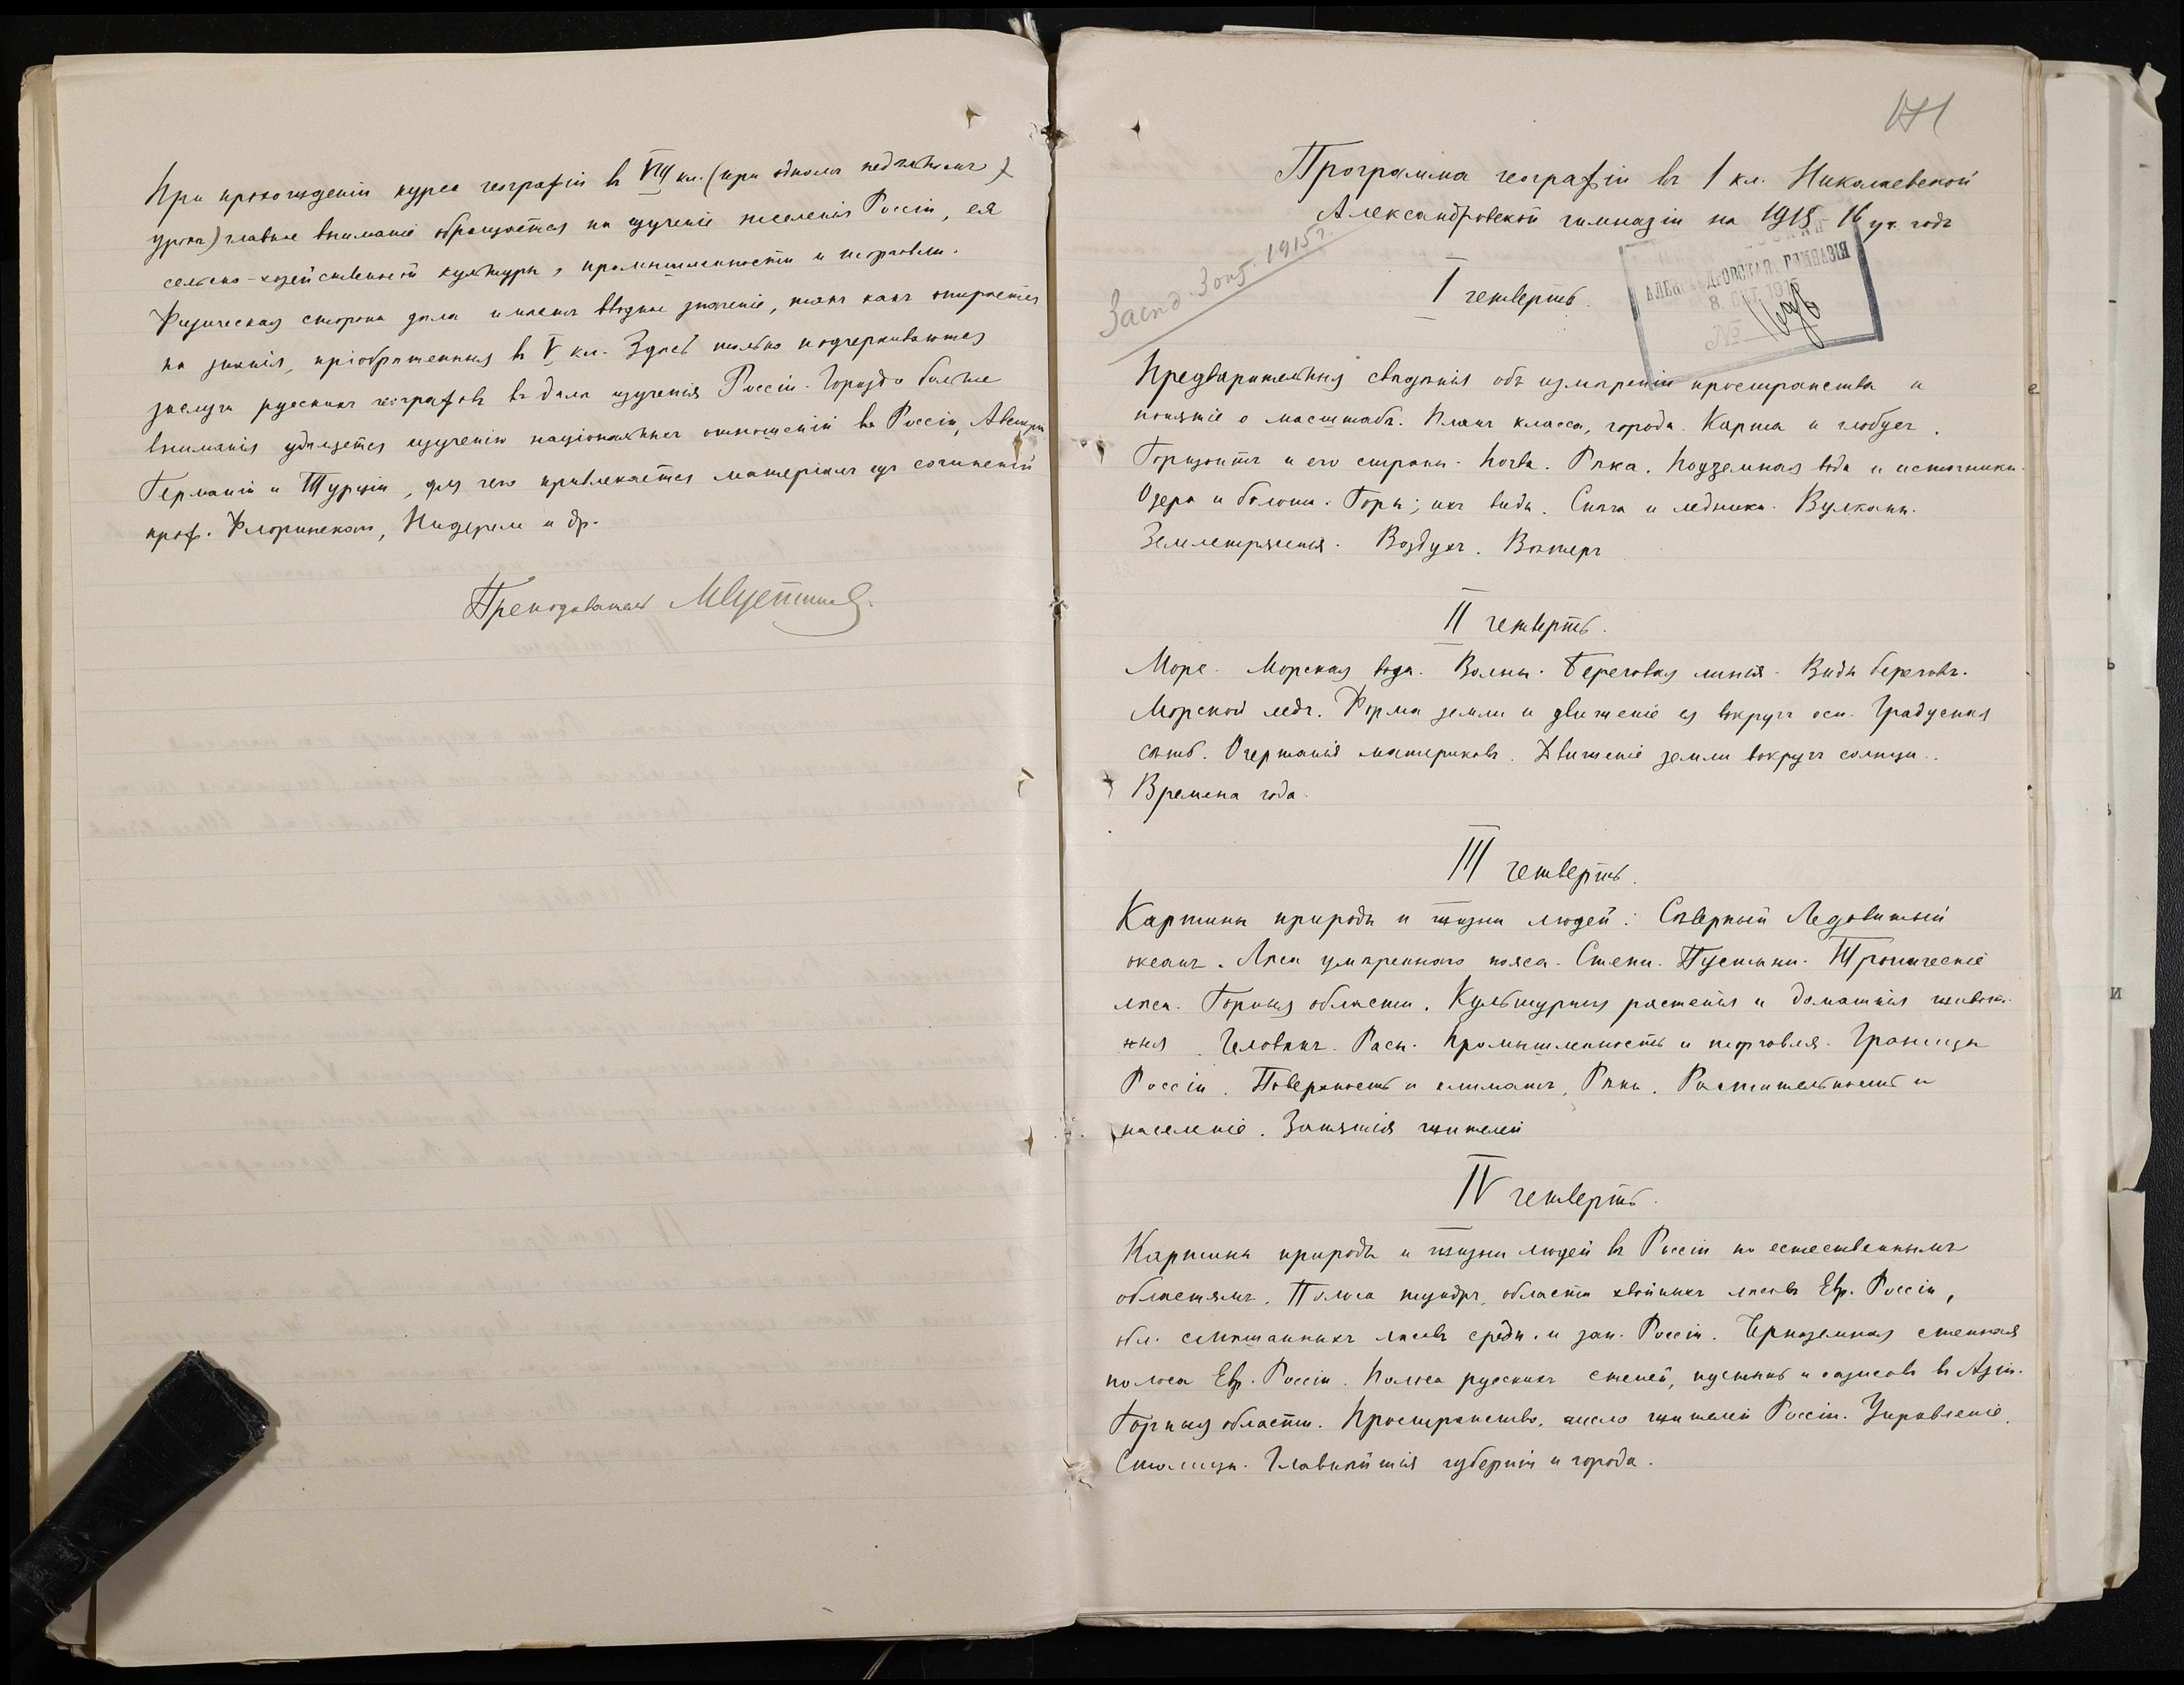 При прохожденіи курса географіи въ VIII кл. (при одномъ недѣльномъ
урокѣ) главное вниманіе обращается на изученіе населенія Россіи, ея
сельско-хозяйственной культуры, промышленности и торговли.
Физическая сторона дѣла имѣетъ вводное значеніе, такъ какъ опирается
на знанія, пріобрѣтенныя въ V кл. Здѣсь только подчеркиваются
заслуги русскихъ географовъ въ дѣлѣ изученія Россіи. Гораздо больше
вниманія удѣляется изученію національныхъ отношеній въ Россіи, Австріи
Германіи и Турціи, для чего привлекается матеріалъ изъ сочиненій
проф. Флоринскаго, Нидерле и др.
Преподаватель
171
Программа географіи въ 1 кл. Николаевской
Александровской гимназіи на 1915-16 уч. годъ
Засѣд. 3 окт. 1915 г.
АЛЕКСАНДРОВСКАЯ ГИМНАЗІЯ
8. ОКТ 1915
№
I четверть.
Предварительныя свѣдѣнія объ измѣреніи пространства и
понятіе о масштабѣ. Планъ класса, города. Карта и глобусъ.
Горизонтъ и его стороны. Почва. Рѣка. Подземная вода и источники.
Озера и болота. Горы; ихъ виды. Снѣга и ледники. Вулканы.
Землетрясенія. Воздухъ. Вѣтеръ
II четверть.
Море. Морская вода. Волны. Береговая линія. Виды береговъ.
Морской ледъ. Форма земли и движеніе ея вокругъ оси. Градусная
сѣть. Очертанія материковъ. Движеніе земли вокругъ солнца.
Времена года.
III четверть.
Картины природы и жизни людей: Сѣверный Ледовитый
океанъ. Лѣса умѣреннаго пояса. Степи. Пустыни. Тропическіе
лѣса. Горныя области. Культурныя растенія и домашнія живот-
ныя. Человѣкъ. Расы. Промышленность и торговля. Границы
Россіи. Поверхность и климатъ. Рѣки. Растительность и
населеніе. Занятія жителей
IV четверть.
Картины природы и жизни людей въ Россіи по естественнымъ
областямъ. Полоса тундръ, области хвойныхъ лѣсовъ Евр. Россіи,
обл. смѣшанныхъ лѣсовъ средн. и зап. Россіи. Черноземная степная
полоса Евр. Россіи. Полоса русскихъ степей, пустынь и оазисовъ въ Азіи.
Горныя области. Пространство, число жителей Россіи. Управленіе.
Столицы. Главнѣйшія губерніи и города.